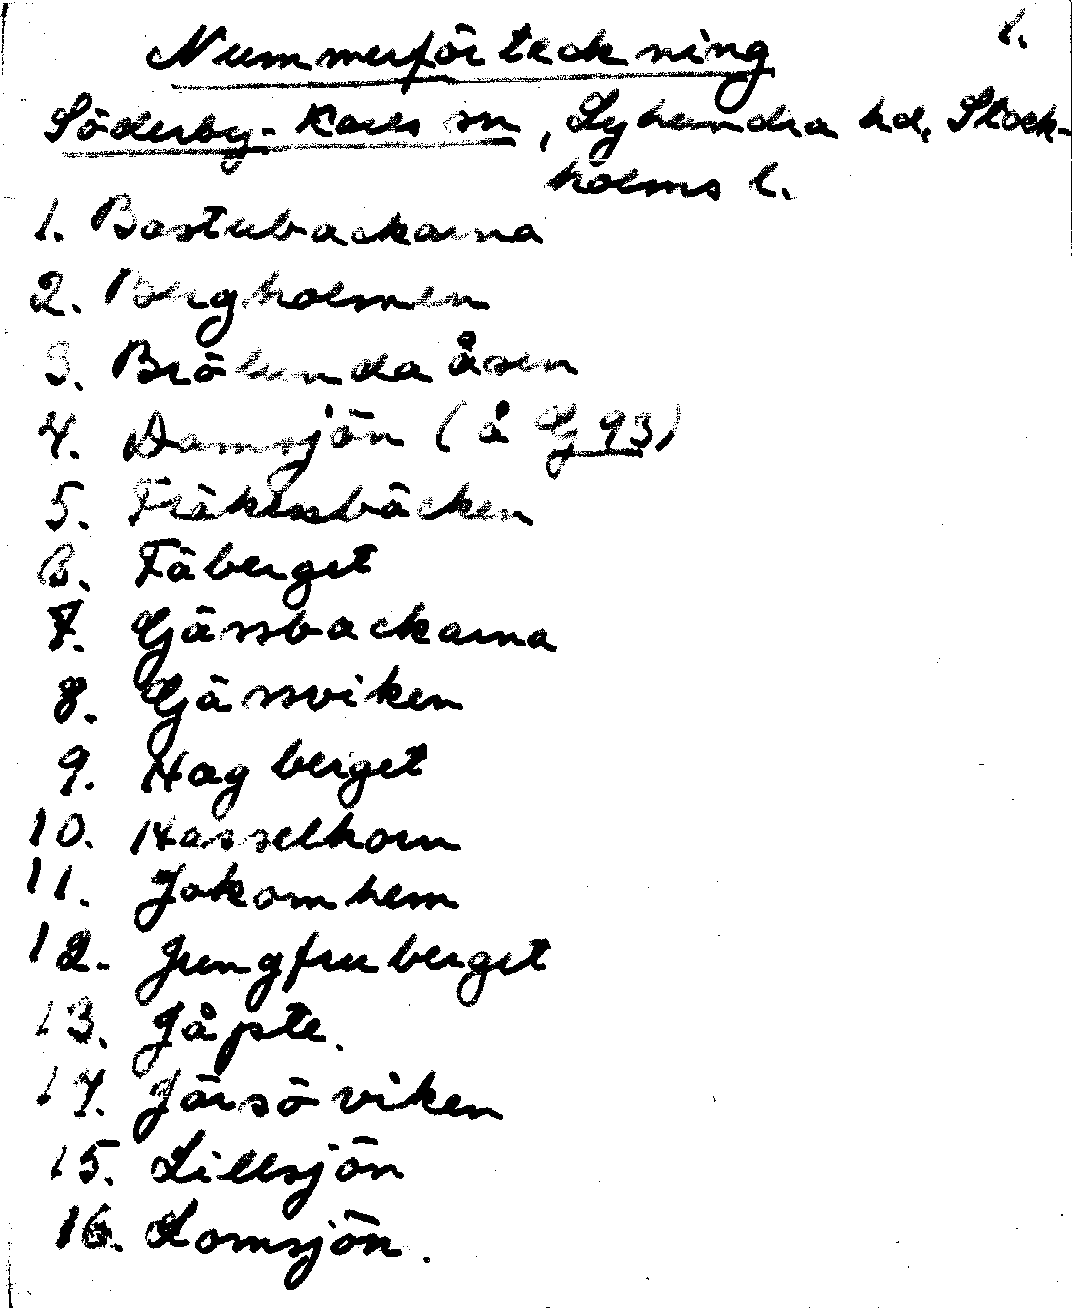 1.
Nummerförteckning
Söderby-Karls sn, Lyhundra hd, Stock-
holms l.
1. Bastubackarna
2. Bergholmen
3. Brölunda åsen
4. Damsjön (å G 93)
5. Fräkensbäcken
6. Fäberget
7. Gjässbackarna
8. Gjässviken
9. Hagberget
10. Hasselhorn
11. Jakomhem
12. Jungfruberget
13. Jåpte.
14. Järsöviken
15. Lillsjön
16. Lomsjön.